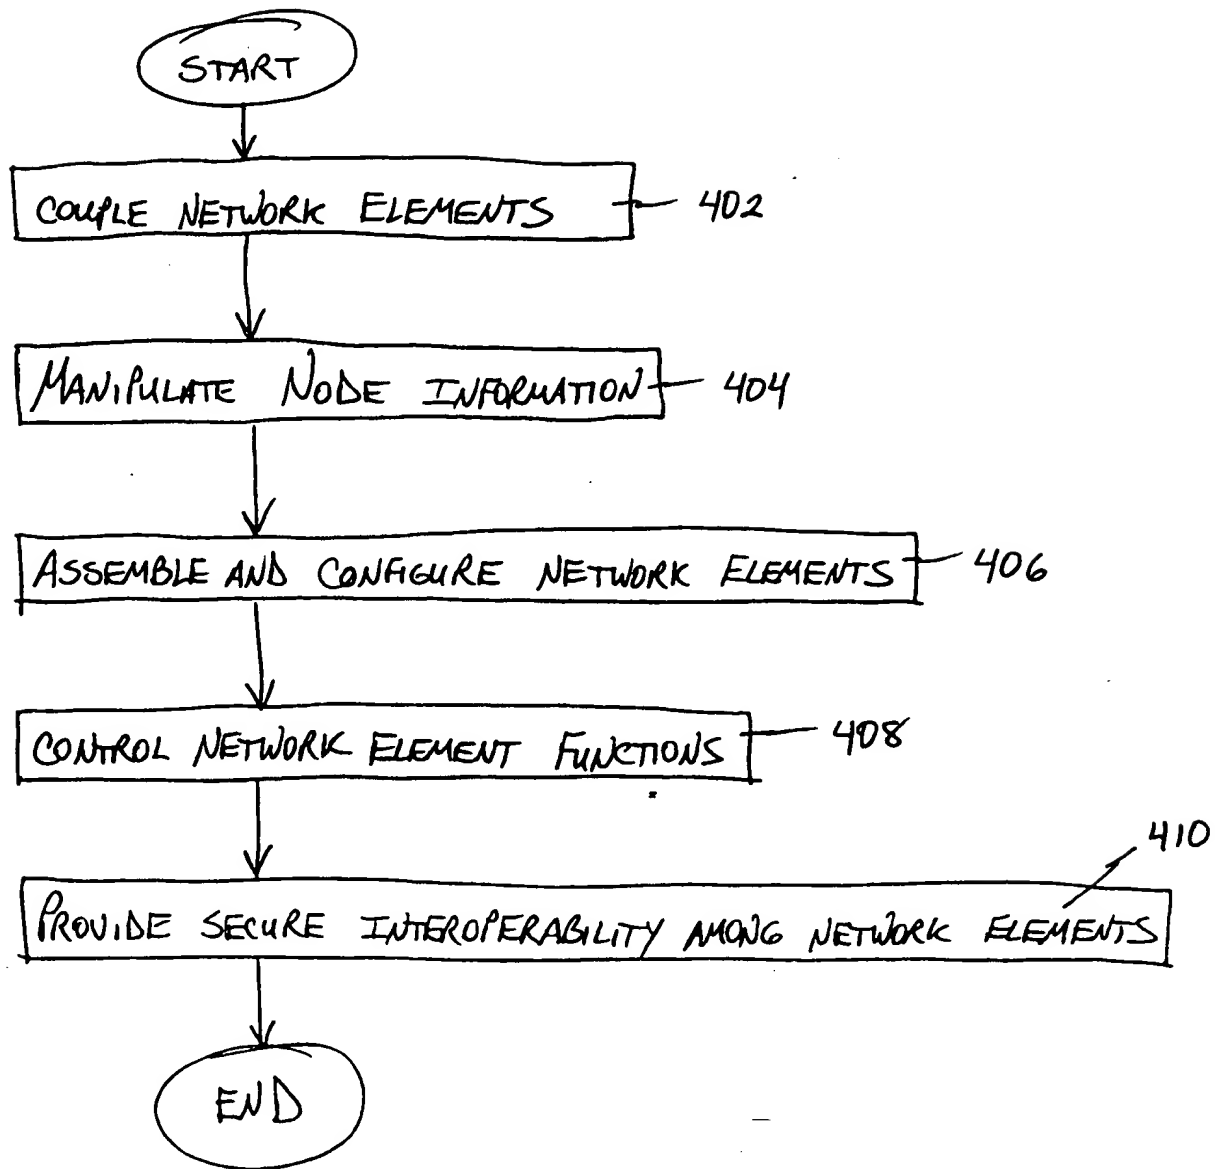 START
COUPLE NETWORK ELEMENTS 402
MANIPULATE NODE INFORMATION 404
ASSEMBLE AND CONFIGURE NETWORK ELEMENTS 406
CONTROL NETWORK ELEMENT FUNCTIONS 408
410
PROVIDE SECURE INTEROPERABILITY AMONG NETWORK ELEMENTS
END